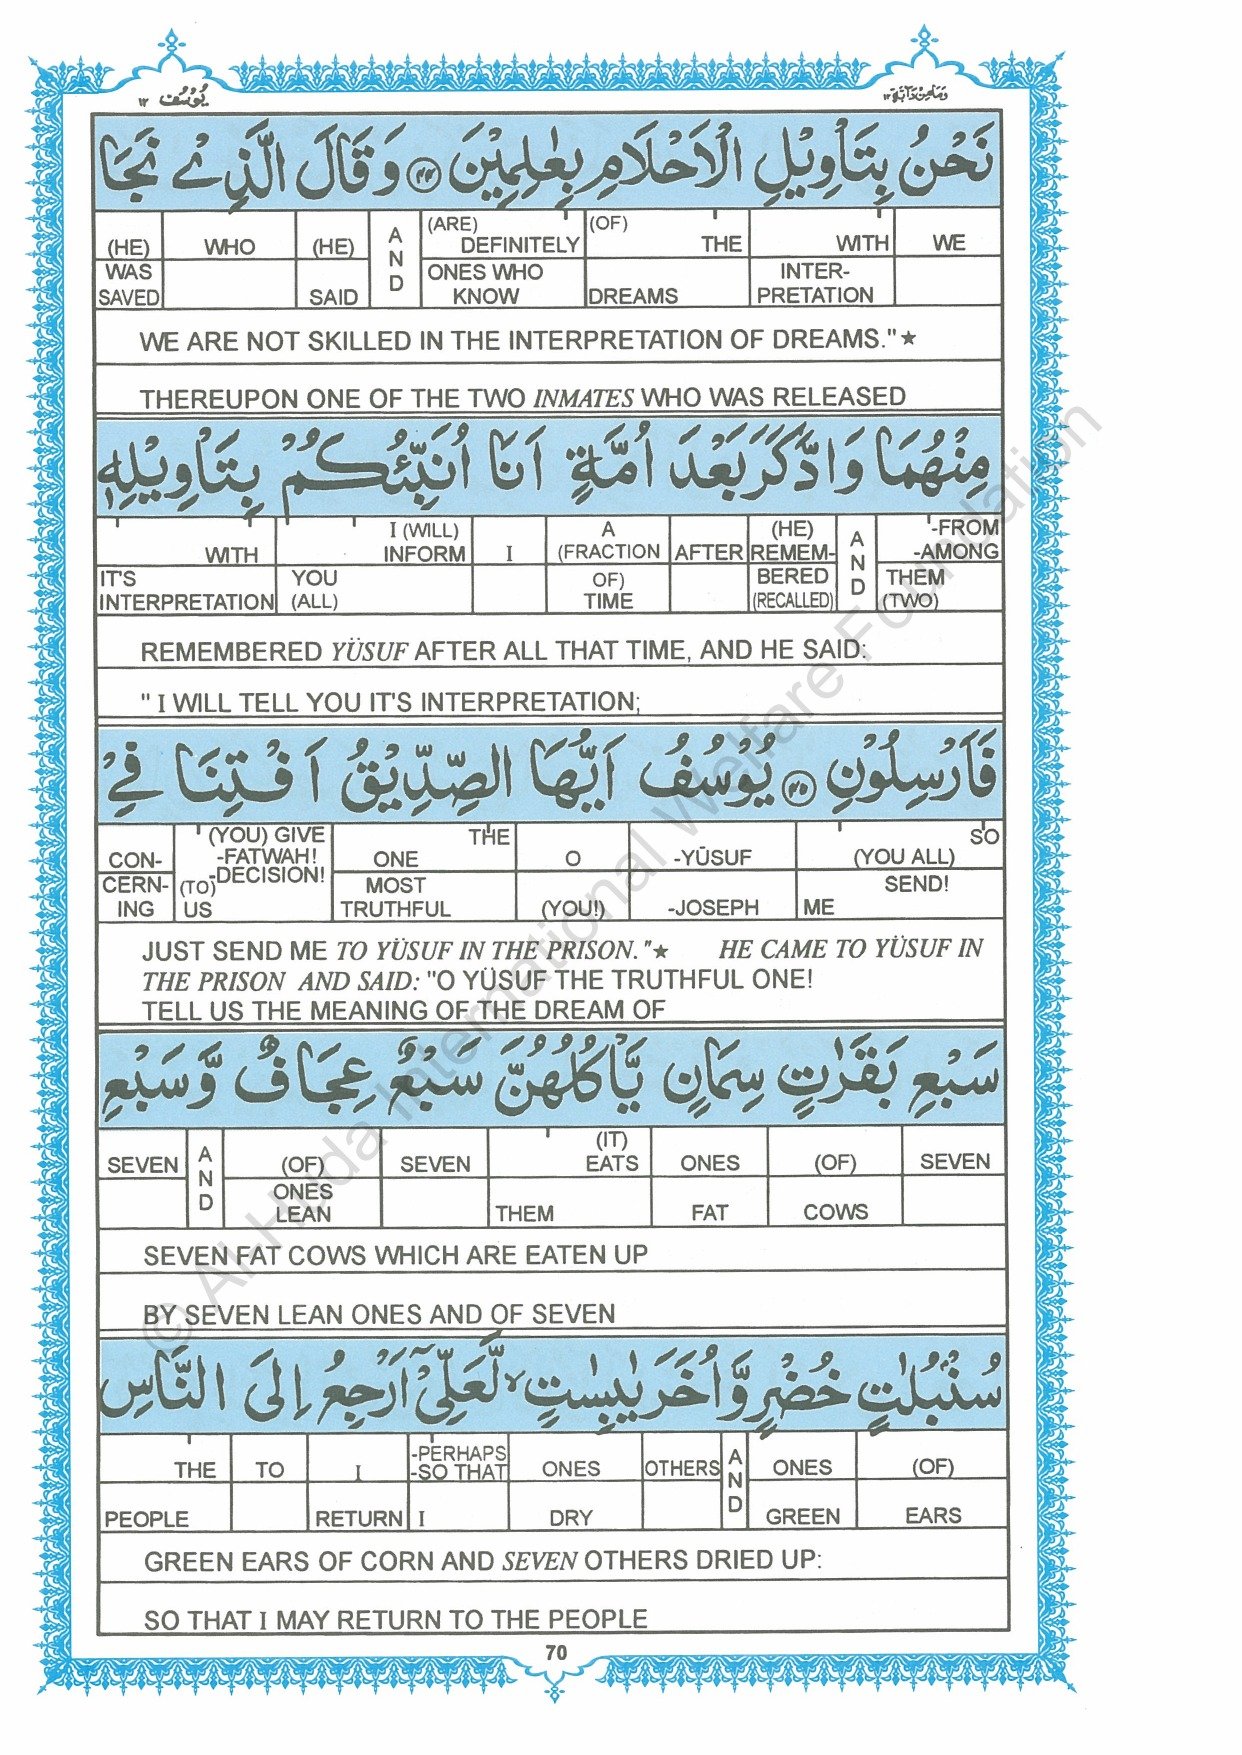 يُوْسُف ١٢
وَمَا مِنْ دَآبَّةٍ ١٢
نَحْنُ بِتَاْوِيْلِ الْاَحْلَامِ بِعٰلِمِيْنَ ۝٤٤ وَقَالَ الَّذِيْ نَجَا
(HE) WHO (HE) AND (ARE) DEFINITELY (OF) THE WITH WE
WAS SAVED SAID ONES WHO KNOW DREAMS INTER- PRETATION
WE ARE NOT SKILLED IN THE INTERPRETATION OF DREAMS."★
THEREUPON ONE OF THE TWO INMATES WHO WAS RELEASED
مِنْهُمَا وَادَّكَرَ بَعْدَ اُمَّةٍ اَنَا اُنَبِّئُكُمْ بِتَاْوِيْلِهٖ
WITH I (WILL) INFORM I A (FRACTION AFTER (HE) REMEM- AND -FROM -AMONG
IT'S INTERPRETATION YOU (ALL) OF) TIME BERED (RECALLED) THEM (TWO)
REMEMBERED YÜSUF AFTER ALL THAT TIME, AND HE SAID:
" I WILL TELL YOU IT'S INTERPRETATION;
فَاَرْسِلُوْنِ ۝٤٥ يُوْسُفُ اَيُّهَا الصِّدِّيْقُ اَفْتِنَا فِيْ
CON- (YOU) GIVE -FATWAH! -DECISION! THE ONE O -YŪSUF SO (YOU ALL)
CERN- ING (TO) US MOST TRUTHFUL (YOU!) -JOSEPH SEND! ME
JUST SEND ME TO YÜSUF IN THE PRISON."★ HE CAME TO YÜSUF IN
THE PRISON AND SAID: "O YÜSUF THE TRUTHFUL ONE!
TELL US THE MEANING OF THE DREAM OF
سَبْعِ بَقَرٰتٍ سِمَانٍ يَّاْكُلُهُنَّ سَبْعٌ عِجَافٌ وَّسَبْعِ
SEVEN AND (OF) SEVEN (IT) EATS ONES (OF) SEVEN
ONES LEAN THEM FAT COWS
SEVEN FAT COWS WHICH ARE EATEN UP
BY SEVEN LEAN ONES AND OF SEVEN
سُنْۢبُلٰتٍ خُضْرٍ وَّاُخَرَ يٰبِسٰتٍ ۙ لَّعَلِّيْٓ اَرْجِعُ اِلَى النَّاسِ
THE TO I -PERHAPS -SO THAT ONES OTHERS AND ONES (OF)
PEOPLE RETURN I DRY GREEN EARS
GREEN EARS OF CORN AND SEVEN OTHERS DRIED UP:
SO THAT I MAY RETURN TO THE PEOPLE
70
© Al-Huda International Welfare Foundation